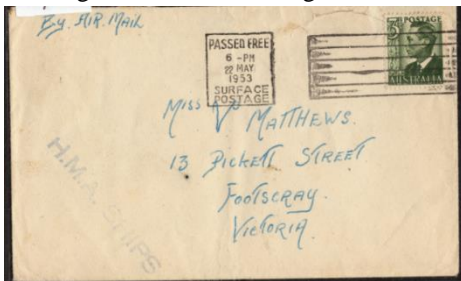 By. AIR. MAIL
PASSED FREE
6 - PM
22 MAY
1953
SURFACE
POSTAGE
POSTAGE
AUSTRALIA
MISS V MATTHEWS.
13 PICKETT STREET
FOOTSCRAY.
VICTORIA.
H.M.A. SHIPS